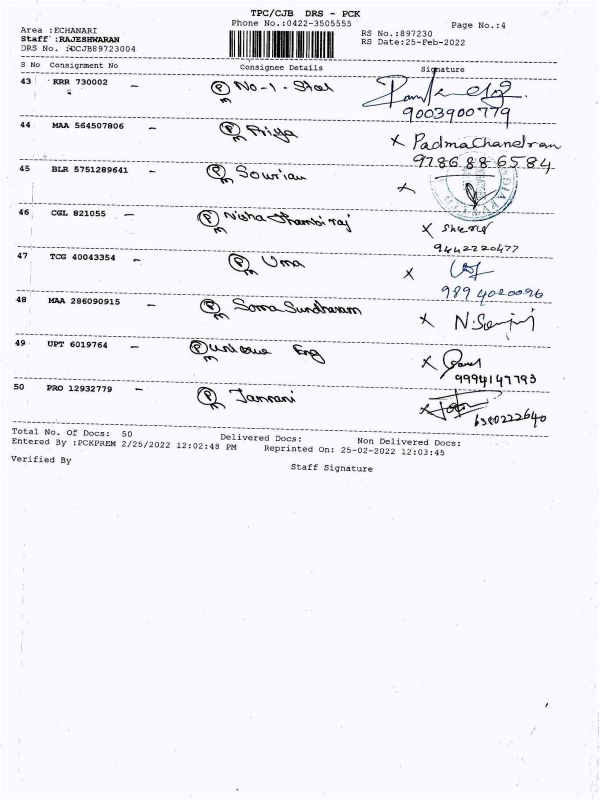 TPC/CJB DRS - PCK
Phone No.:0422-3505555 Page No.:4
Area :ECHANARI RS No.:897230
Staff :RAJESHWARAN RS Date:25-Feb-2022
DRS No. :DCJB89723004
S No Consignment No Consignee Details Signature
43 KRR 730002 - P No-1-Star
9003900779
44 MAA 564507806 - P Priya x PadmaChandran
9786886584
45 BLR 5751289641 - P Sourian x
46 CGL 821055 - P Nisha Thambi raj x
9442220477
47 TCG 40043354 - P Uma x
9894020096
48 MAA 286090915 - P Soma Sundharam x
49 UPT 6019764 - P unique Eng x
9994147793
50 PRO 12932779 - P Janani x
6380222640
Total No. Of Docs: 50 Delivered Docs: Non Delivered Docs:
Entered By :PCKPREM 2/25/2022 12:02:48 PM Reprinted On: 25-02-2022 12:03:45
Verified By Staff Signature